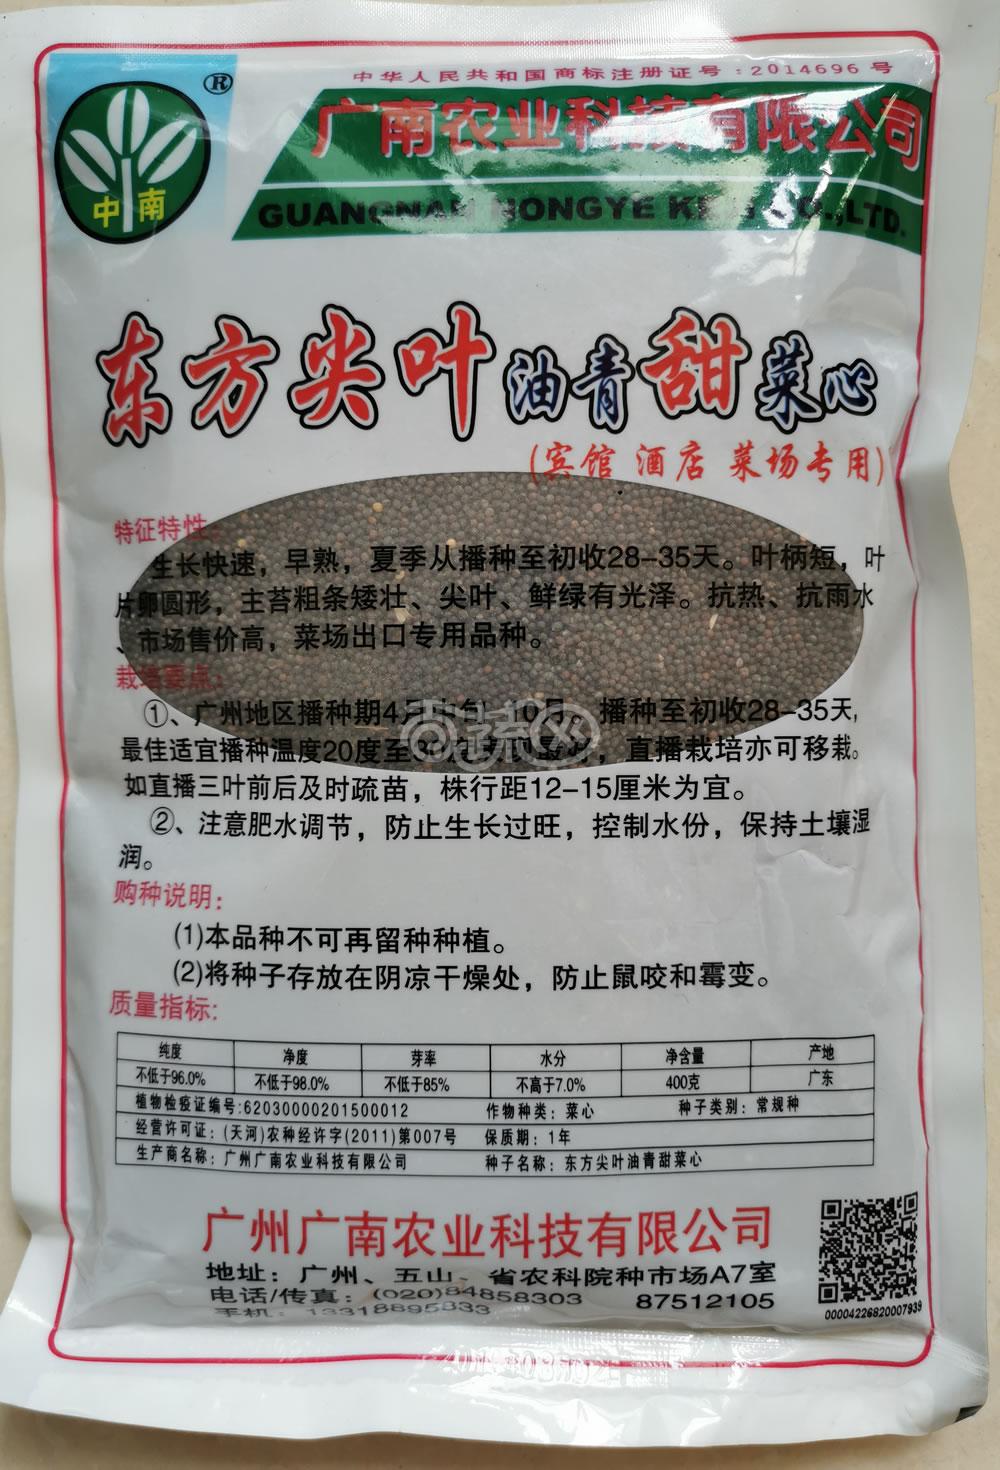 中华人民共和国商标注册证号:2014696 号
®
中南
广南农业科技有限公司
GUANGNAN NONGYE KEJI CO.,LTD.
东方尖叶油青甜菜心
(宾馆 酒店 菜场专用)
特征特性:
生长快速，早熟，夏季从播种至初收28-35天。叶柄短，叶
片卵圆形，主苔粗条矮壮、尖叶、鲜绿有光泽。抗热、抗雨水
、市场售价高，菜场出口专用品种。
栽培要点:
①、广州地区播种期4月中旬 10月。播种至初收28-35天,
最佳适宜播种温度20度至30度 直播栽培亦可移栽。
如直播三叶前后及时疏苗，株行距12-15厘米为宜。
②、注意肥水调节，防止生长过旺，控制水份，保持土壤湿
润。
购种说明:
(1)本品种不可再留种种植。
(2)将种子存放在阴凉干燥处，防止鼠咬和霉变。
质量指标:
纯度 净度 芽率 水分 净含量 产地
不低于96.0% 不低于98.0% 不低于85% 不高于7.0% 400克 广东
植物检疫证编号:62030000201500012 作物种类: 菜心 种子类别: 常规种
经营许可证: (天河)农种经许字(2011)第007号 保质期: 1年
生产商名称: 广州广南农业科技有限公司 种子名称: 东方尖叶油青甜菜心
广州广南农业科技有限公司
地址: 广州、五山、省农科院种市场A7室
电话/传真: (020)84858303 87512105
手机: 13318895833
00004226820007939